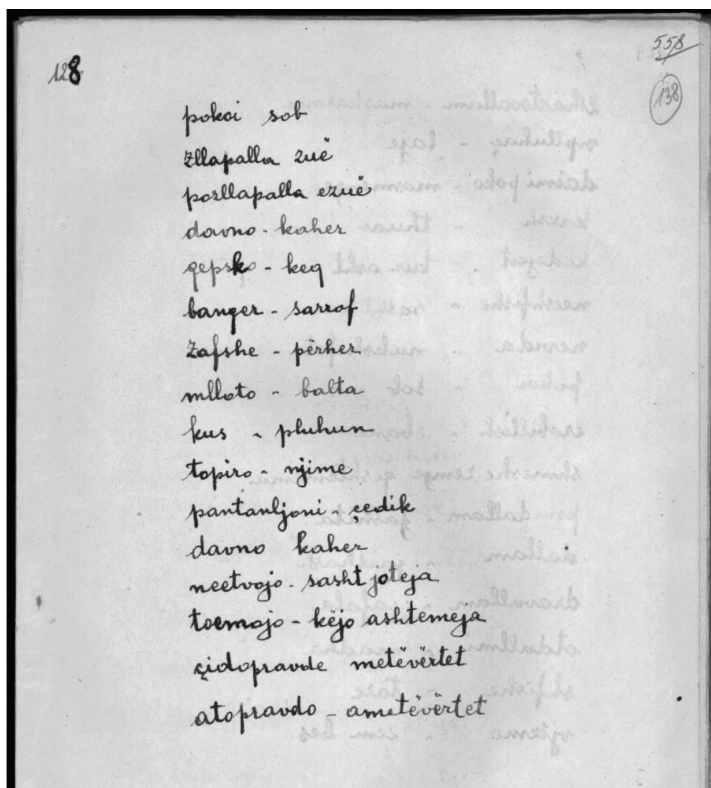 558
128
138
pokoi sob
zllapalla zuë
pozllapalla ezuë
davno - kaher
qepsko - keq
banger - sarrof
zafshe - përher
mlloto - balta
kus - pluhun
topiro - njime
pantanljoni - çedik
davno kaher
neetvojo - sasht joteja
toemojo - këjo ashtemeja
çidopravde metëvërtet
atopravdo - ametëvërtet